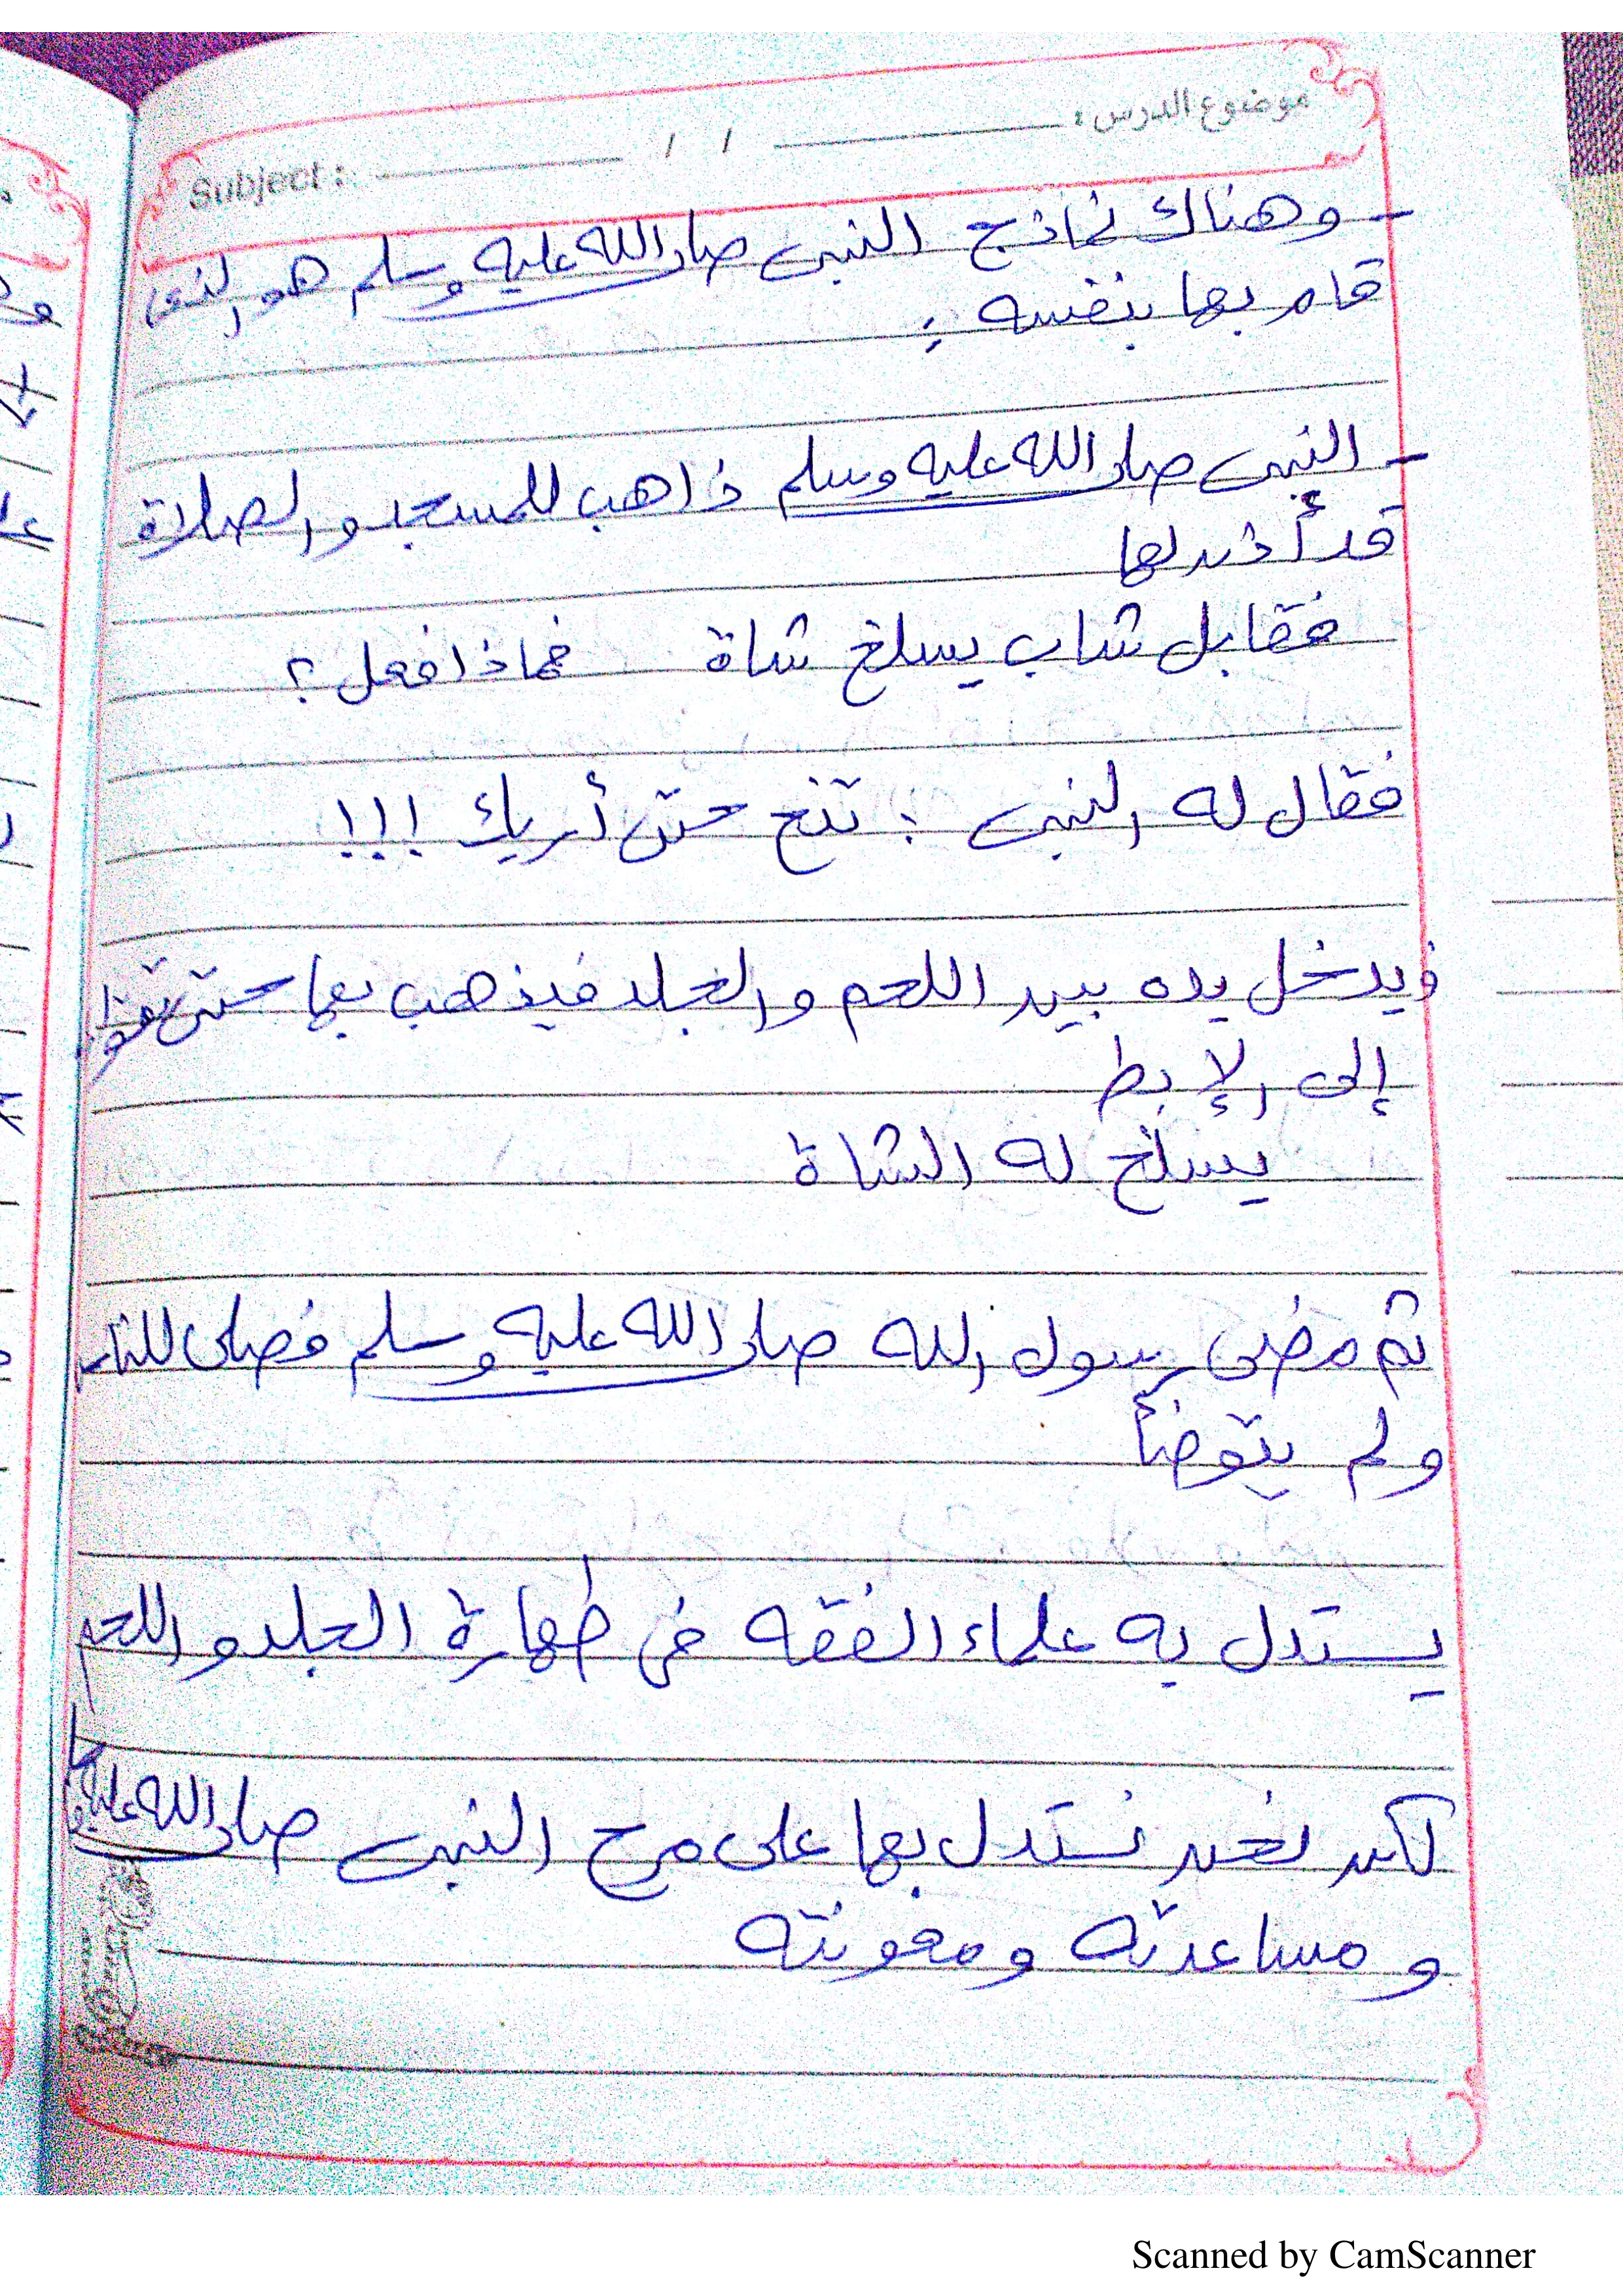 موضوع الدرس : / / Subject :
- وهناك نماذج النبى صلى الله عليه وسلم هو الذى
قام بها بنفسه :
- النبى صلى الله عليه وسلم ذاهب للمسجد والصلاة
قد أذن لها
فقابل شاب يسلخ شاة فماذا فعل ؟
فقال له النبى : تنح حتى أريك !!!
ويدخل يده بين اللحم والجلد فيذهب بها حتى
إلى الإبط
يسلخ له الشاة
ثم مضى رسول الله صلى الله عليه وسلم فصلى للناس
ولم يتوضأ
يستدل به علماء الفقه فى طهارة الجلد واللحم
لكن نحن نستدل بها على مرح النبى صلى الله عليه
ومساعدته ومعونته
Scanned by CamScanner